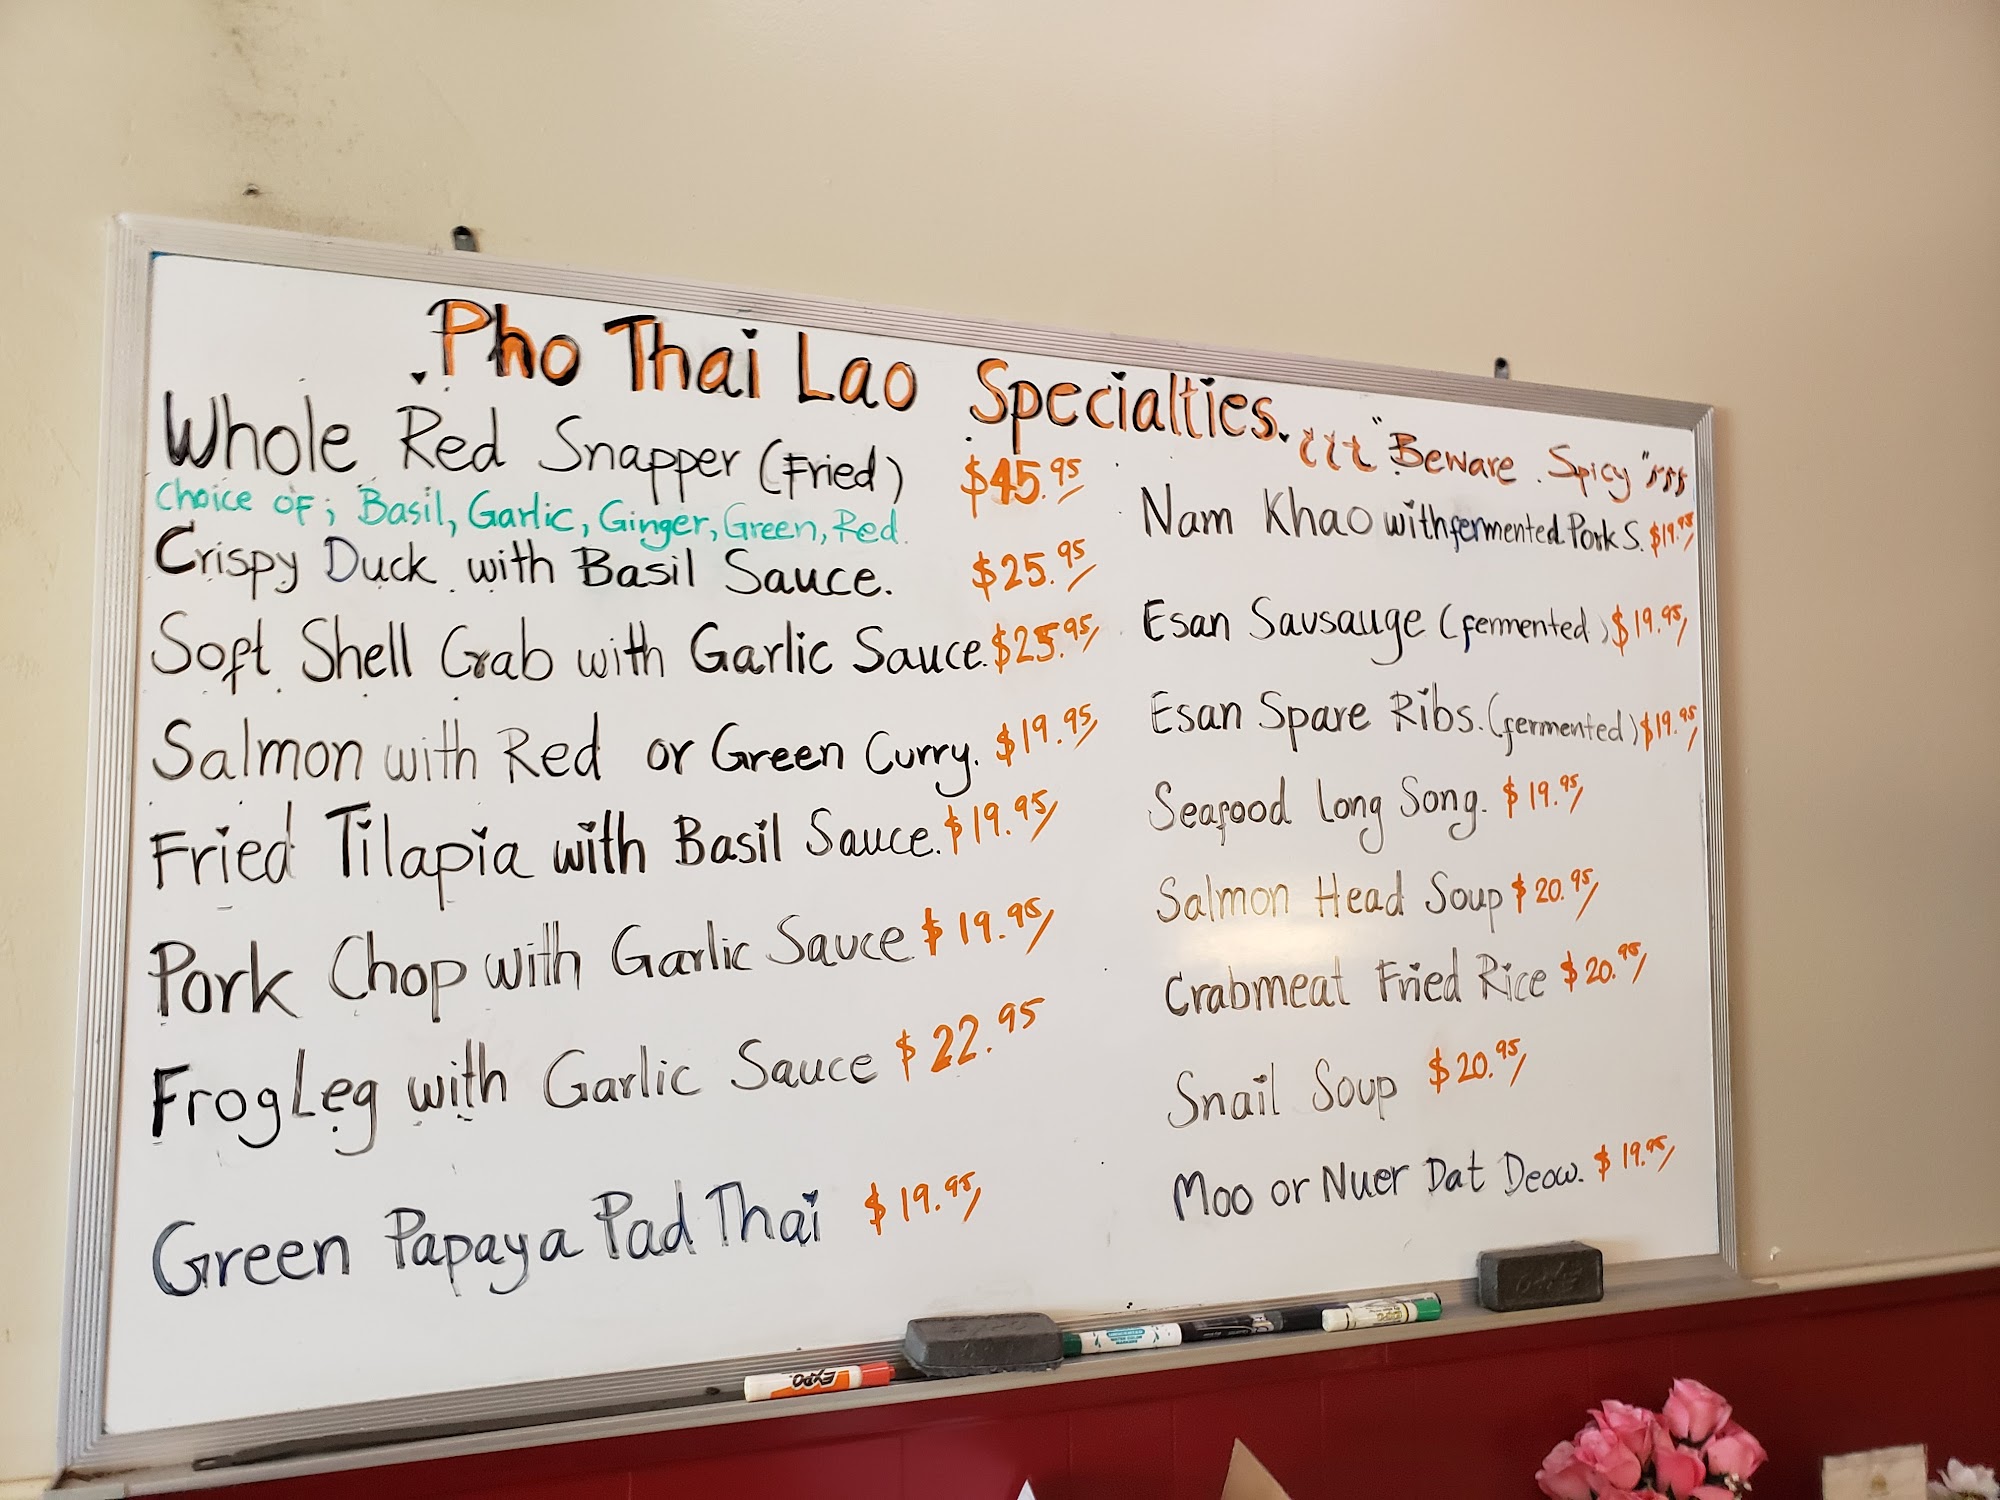 Pho Thai Lao Specialties.
Whole Red Snapper (Fried) $45.95
Choice of; Basil, Garlic, Ginger, Green, Red.
Crispy Duck with Basil Sauce. $25.95
Soft Shell Crab with Garlic Sauce. $25.95
Salmon with Red or Green Curry. $19.95
Fried Tilapia with Basil Sauce. $19.95
Pork Chop with Garlic Sauce $19.95
Frog Leg with Garlic Sauce $22.95
Green Papaya Pad Thai $19.95
"Beware Spicy"
Nam Khao with fermented Pork S. $19.95
Esan Sausauge (fermented) $19.95
Esan Spare Ribs. (fermented) $19.95
Seafood Long Song. $19.95
Salmon Head Soup $20.95
Crabmeat Fried Rice $20.95
Snail Soup $20.95
Moo or Nuer Dat Deow. $19.95
EXPO